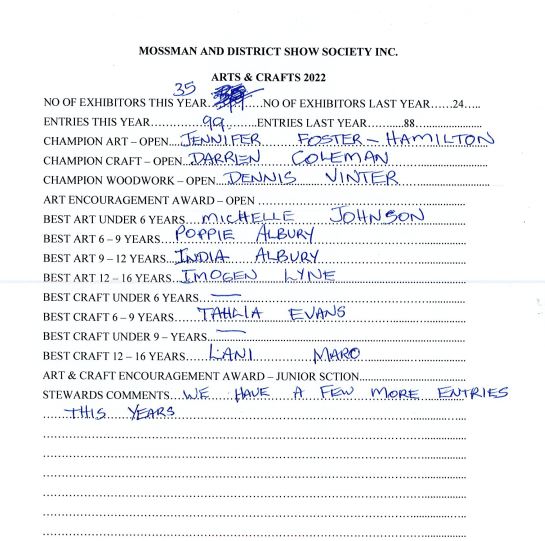 MOSSMAN AND DISTRICT SHOW SOCIETY INC.
ARTS & CRAFTS 2022
NO OF EXHIBITORS THIS YEAR 35 NO OF EXHIBITORS LAST YEAR......24.....
ENTRIES THIS YEAR 99 ENTRIES LAST YEAR..........88
CHAMPION ART – OPEN JENNIFER FOSTER-HAMILTON
CHAMPION CRAFT – OPEN DARRIEN COLEMAN
CHAMPION WOODWORK – OPEN DENNIS VINTER
ART ENCOURAGEMENT AWARD – OPEN
BEST ART UNDER 6 YEARS MICHELLE JOHNSON
BEST ART 6 – 9 YEARS POPPIE ALBURY
BEST ART 9 – 12 YEARS INDIA ALBURY
BEST ART 12 – 16 YEARS IMOGEN LYNE
BEST CRAFT UNDER 6 YEARS —
BEST CRAFT 6 – 9 YEARS TAHLIA EVANS
BEST CRAFT UNDER 9 – YEARS —
BEST CRAFT 12 – 16 YEARS LANI MARO
ART & CRAFT ENCOURAGEMENT AWARD – JUNIOR SCTION
STEWARDS COMMENTS WE HAVE A FEW MORE ENTRIES
THIS YEARS